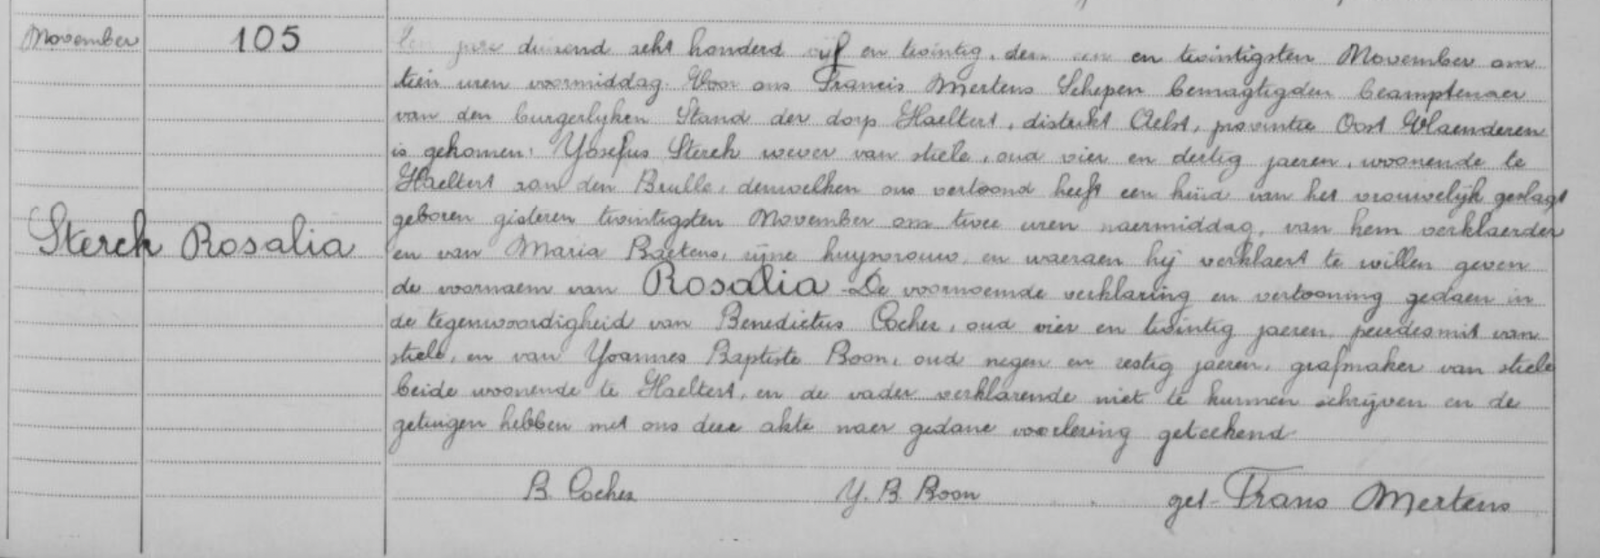 November
105
jare duizend acht honderd vijf en twintig, den een en twintigsten November om
tien uren voormiddag. Voor ons Francis Mertens Schepen bemagtigden beamptenaer
van den burgerlyken Stand der dorp Haeltert, distrikt Aelst, provintie Oost Vlaenderen
is gekomen: Yosefus Sterck wever van stiele, oud vier en dertig jaeren, woonende te
Haeltert aan den Brulle, denwelken ons vertoond heeft een kind van het vrouwelijk geslagt
geboren gisteren twintigsten November om twee uren naermiddag, van hem verklaerder
Sterck Rosalia
en van Maria Baetens, zijne huysvrouw, en waeraen hij verklaert te willen geven
de voornaem van Rosalia. De voornoemde verklaring en vertooning gedaen in
de tegenwoordigheid van Benedictus Cocher, oud vier en twintig jaeren, peerdesmit van
stiele, en van Yoannes Baptiste Boon, oud negen en zestig jaeren, grafmaker van stiele
beide woonende te Haeltert, en de vader verklarende niet te kunnen schrijven en de
getuigen hebben met ons deze akte naer gedane voorlezing geteekend.
B. Cocher Y. B. Boon get. Frans Mertens